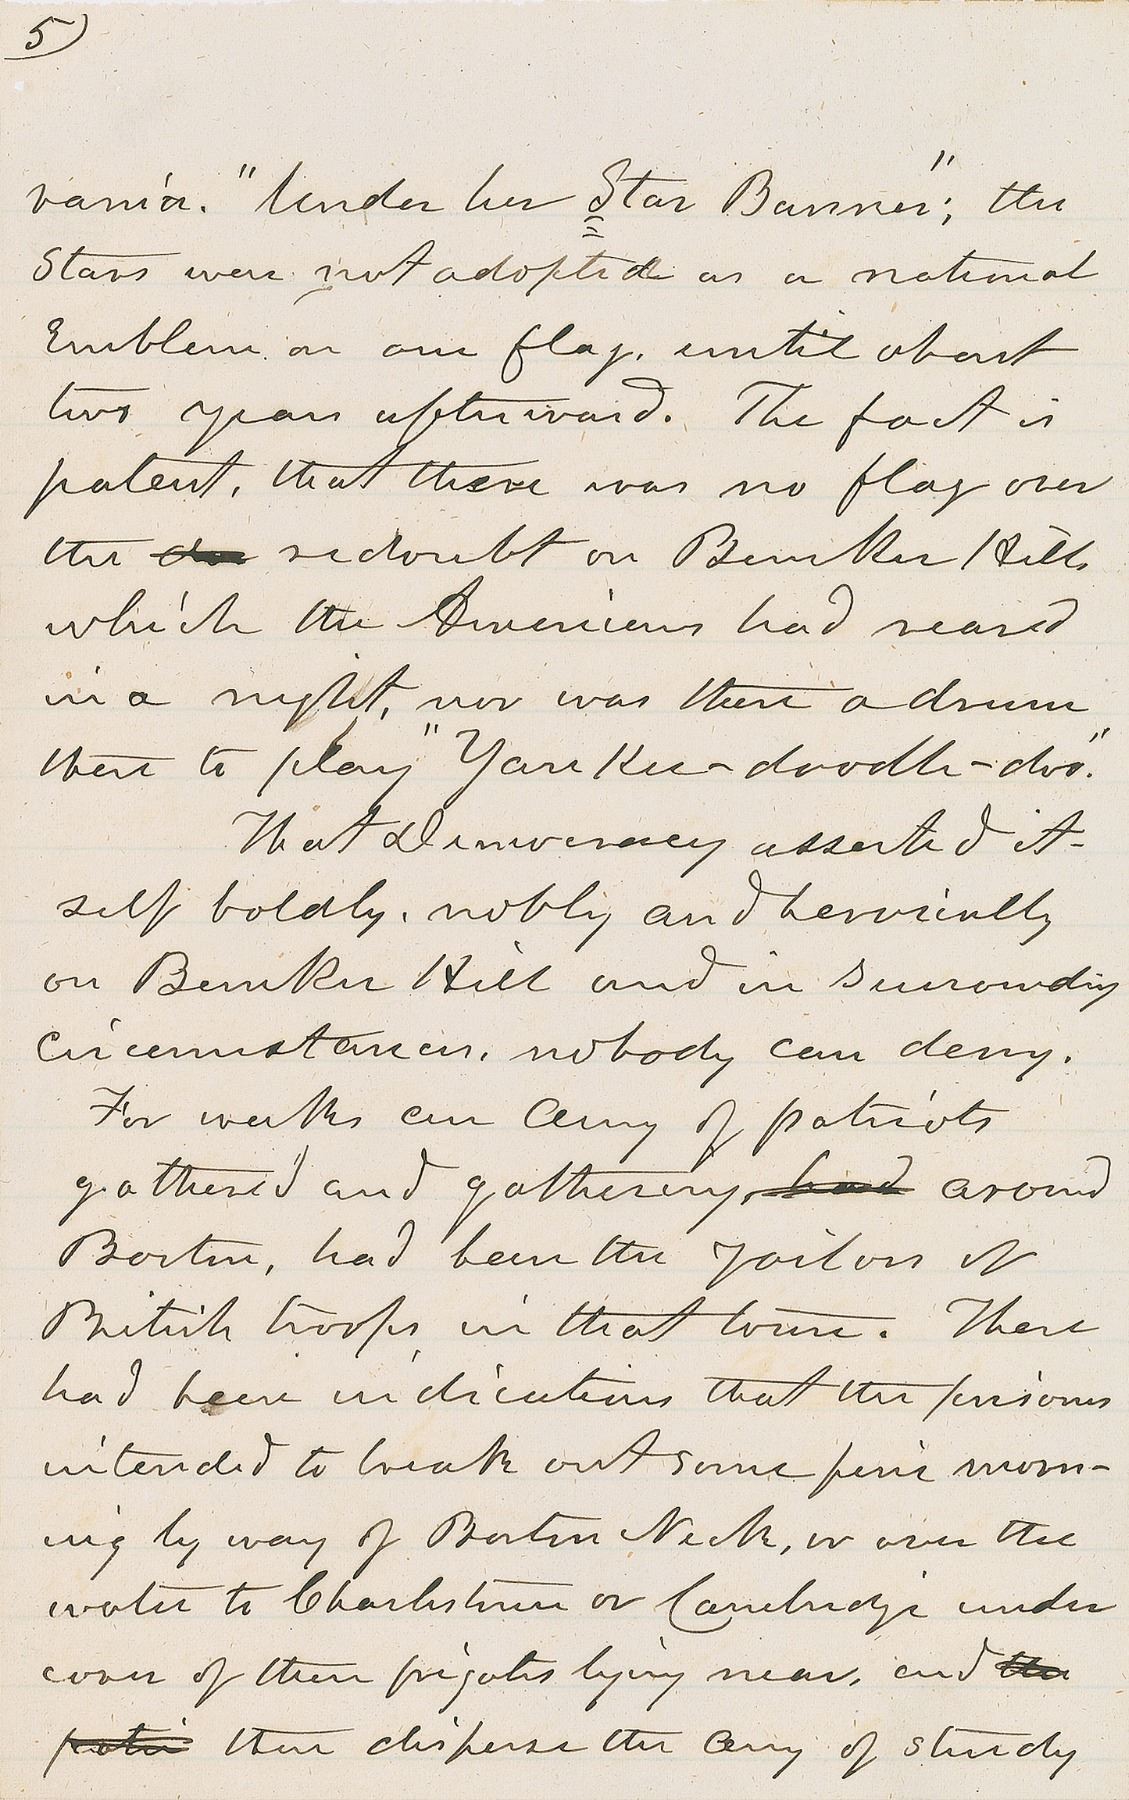 5)
vania. "Under her Star Banner"; the
Stars were not adopted as a national
Emblem on our flag, until about
two years afterward. The fact is
patent, that there was no flag over
the redoubt on Bunker Hill,
which the Americans had reared
in a night, nor was there a drum
there to play "Yankee-doodle-doo".
That Democracy asserted it-
self boldly, nobly and heroically
on Bunker Hill and in surrounding
circumstances, nobody can deny.
For weeks an army of patriots
gathered and gathering, had around
Boston, had been the jailors of
British troops in that town. There
had been indications that the prisoners
intended to break out some fine morn-
ing by way of Boston Neck, or over the
water to Charlestown or Cambridge under
cover of their frigates lying near, and the
patri then disperse the army of sturdy